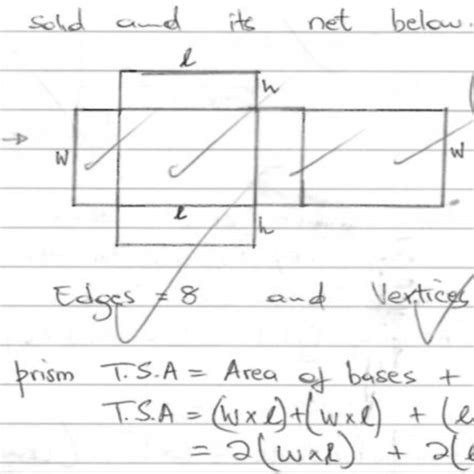 solid and its net below.
l
h
W
W
l
h
Edges = 8 and Vertices
prism T.S.A = Area of bases +
T.S.A = (w×l)+(w×l) + (l
= 2(w×l) + 2(l